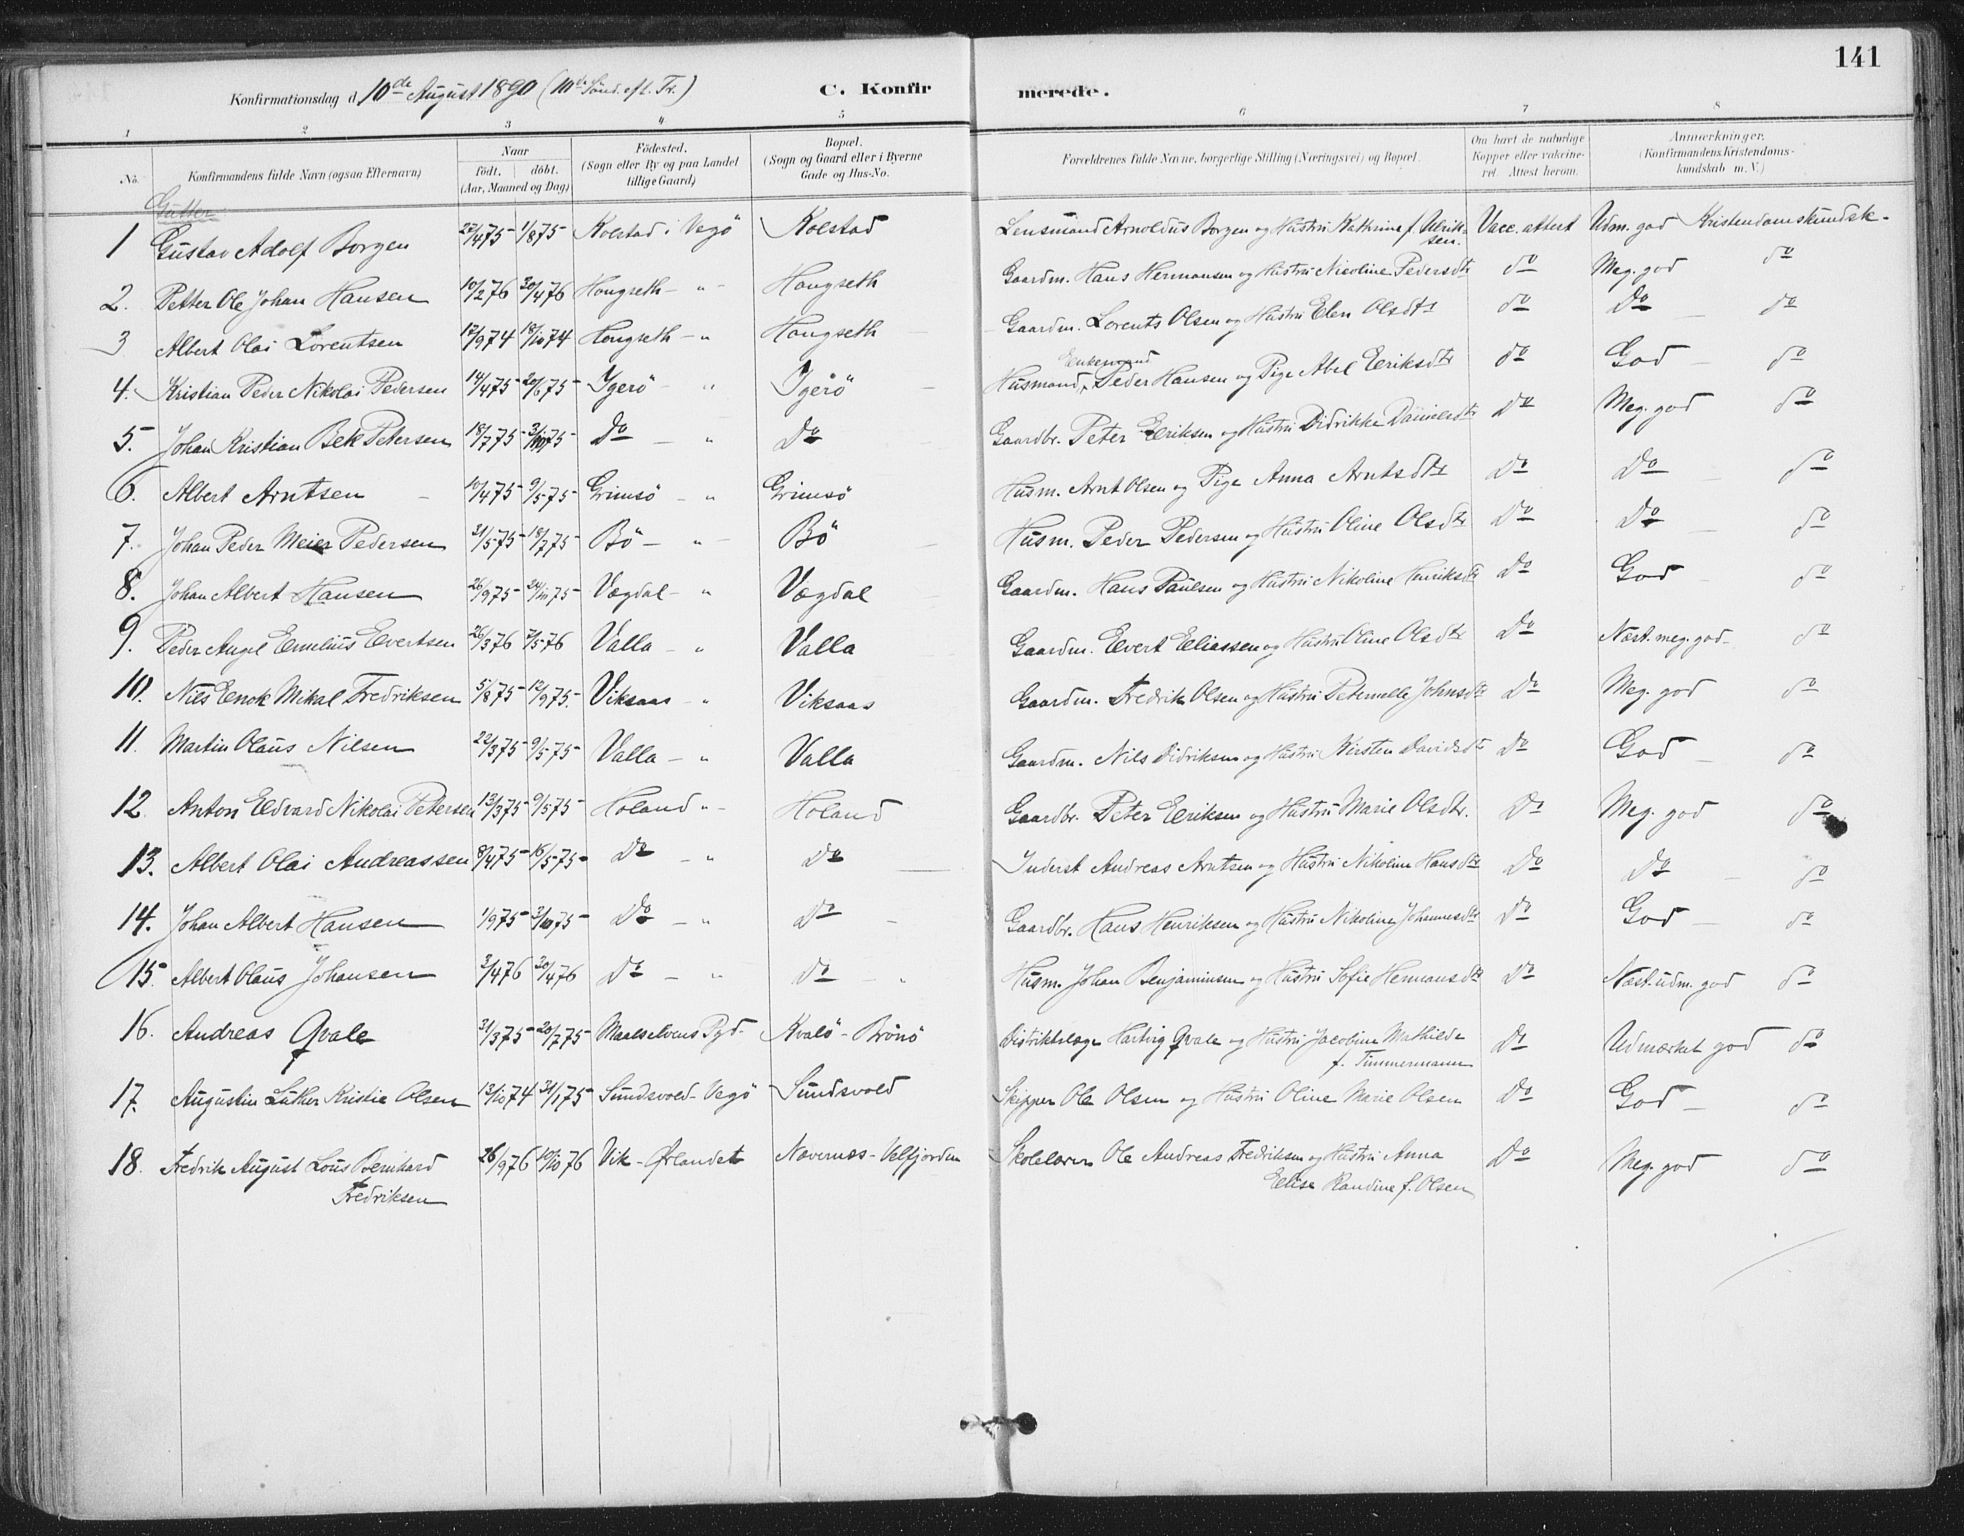 141
Konfirmationsdag d. 10de August 1890 (10de Sønd. eft. Tr.) C. Konfirmerede.
1 2 3 4 5 6 7 8
No. Konfirmandens fulde Navn (ogsaa Efternavn) Naar født. døbt. (Aar, Maaned og Dag) Fødested. (Sogn eller By og paa Landet tillige Gaard) Bopæl. (Sogn og Gaard eller i Byerne Gade og Hus-No. Forældrenes fulde Navne, borgerlige Stilling (Næringsvei) og Bopæl. Om havt de naturlige Kopper eller vakcineret. Attest herom. Anmærkninger. (Konfirmandens Kristendomskundskab m. V.)
Gutter
1 Gustav Adolf Borgen 27/4 75 1/8 75 Kolstad i Vegö Kolstad Lensmand Arnoldus Borgen og Hustru Kathrine f. Ulriksen. Vacc. attest Udm. god Kristendomskundsk-
2. Petter Ole Johan Hansen 10/2 76 30/4 76 Hongseth - " - Hongseth Gaardm. Hans Hermansen og Hustru Nicoline Pedersdtr do Meg. god do
3 Albert Olai Lorentsen 17/9 74 18/10 74 Hongseth - " Hongseth Gaardm. Lorents Olsen og Hustru Elen Olsdtr do Do do
4. Kristian Peder Nikolai Pedersen 14/4 75 20/6 75 Ygerö - " Ygerö Husmand, Enkemand Peder Hansen og Pige Abel Eriksdtr do God do
5. Johan Kristian Bek Petersen 18/7 75 3/10 75 Do - " Do Gaardbr. Peter Eriksen og Hustru Didrikke Danielsdtr Do Meg. god do
6. Albert Arntsen 10/4 75 9/5 75 Grimsö - " Grimsö Husm. Arnt Olsen og Pige Anna Arntsdtr Do Do do
7. Johan Peder Meier Pedersen 31/5 75 18/7 75 Bö - " Bö Husm. Peder Pedersen og Hustru Oline Olsdtr Do Do do
8. Johan Albert Hansen 26/9 75 24/10 75 Vægdal - " Vægdal Gaardm. Hans Paulsen og Hustru Nikoline Henriksdtr Do God do
9. Peder Angel Ermelius Evertsen 26/3 76 7/5 76 Valla - " Valla Gaardm. Evert Eliassen og Hustru Oline Olsdtr Do Næst. meg. god- do
10. Nils Enok Mikal Fredriksen 5/8 75 12/9 75 Viksaas - " Viksaas Gaardm. Fredrik Olsen og Hustru Peternelle Johnsdtr Do Meg. god do
11. Martin Olaus Nilsen 22/3 75 9/5 75 Valla - " Valla Gaardm. Nils Didriksen og Hustru Kirsten Davidsdtr Do God do
12. Anton Edvard Nikolai Petersen 13/3 75 9/5 75 Holand " - Holand Gaardbr. Peter Eriksen og Hustru Marie Olsdtr. Do Meg. god do
13. Albert Olai Andreassen 8/4 75 16/5 75 Do - " do Inderst Andreas Arntsen og Hustru Nikoline Hansdtr Do Do do
14. Johan Albert Hansen 1/9 75 3/10 75 Do - " Do - Gaardbr. Hans Henriksen og Hustru Nikoline Johannesdtr Do God do
15. Albert Olaus Johansen 2/4 76 30/4 76 do - " do - " Husm. Johan Benjaminsen og Hustru Sofie Hermansdtr Do Næst. udm. god do
16. Andreas Qvale 31/3 75 20/7 75 Maalselvens Pgd. Kvalö - Brönö Distriktslæge Hartvig Qvale og Hustru Jacobine Mathilde f. Timmermann Do Udmærket god do
17. Augustin Luther Kristie Olsen 13/10 74 31/1 75 Sundsvold - Vegö Sundsvold Skipper Ole Olsen og Hustru Oline Marie Olsen Do God do
18. Fredrik August Lous Bernhard Fredriksen 26/9 76 19/10 76 Vik - Ørlandet Nævernæs - Velfjorden Skolelærer Ole Andreas Fredriksen og Hustru Anna Elise Randine f. Olsen Do Meg. god do